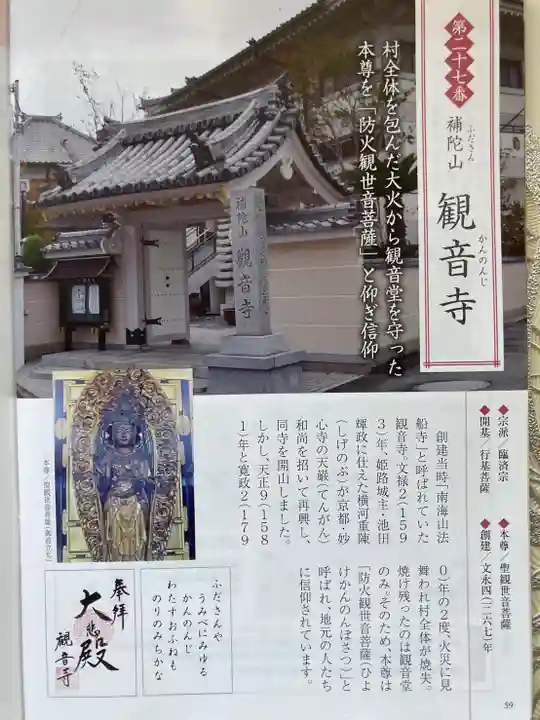 第二十七番
補陀山
ふださん
観音寺
かんのんじ
村全体を包んだ大火から観音堂を守った
本尊を「防火観世音菩薩」と仰ぎ信仰
補陀山
観音寺
◆宗派／臨済宗
◆開基／行基菩薩
◆本尊／聖観世音菩薩
◆創建／文永四(一二六七)年
創建当時「南海山法
船寺」と呼ばれていた
観音寺。文禄2(159
3)年、姫路城主・池田
輝政に仕えた横河重陳
(しげのぶ)が京都・妙
心寺の天巌(てんがん)
和尚を招いて再興し、
同寺を開山しました。
しかし、天正9(158
1)年と寛政2(179
0)年の2度、火災に見
舞われ村全体が焼失。
焼け残ったのは観音堂
のみ。そのため、本尊は
「防火観世音菩薩(ひよ
けかんのんぼさつ)」と
呼ばれ、地元の人たち
に信仰されています。
本尊／聖観世音菩薩(御前立ち)
ふださんや
うみべにみゆる
かんのんじ
わたすおふねも
のりのみちかな
奉拝
大悲殿
観音寺
59